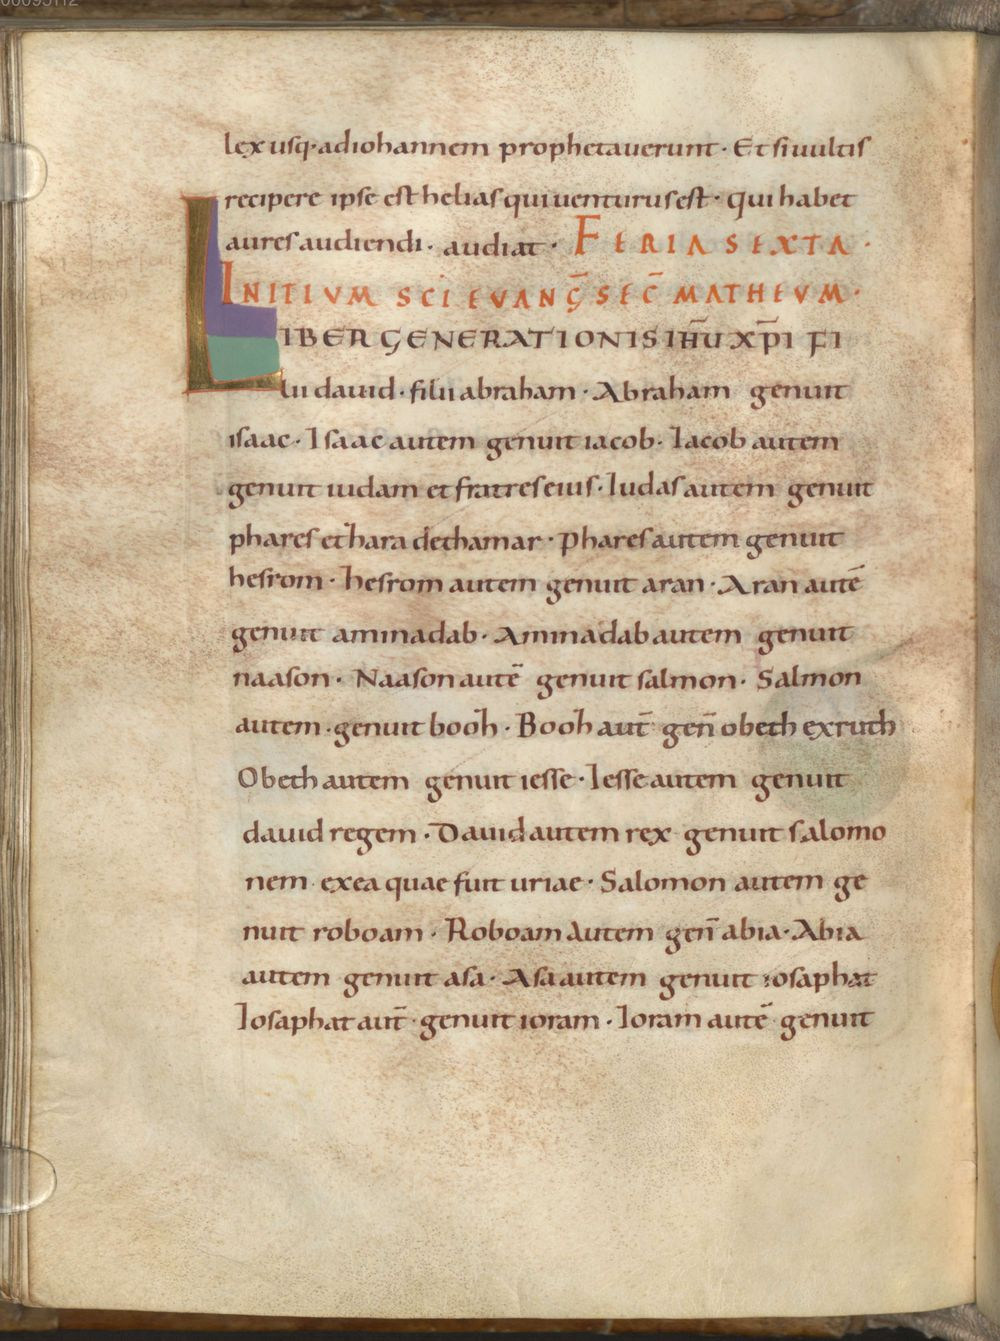 lex usq· ad iohannem prophetauerunt· Et si uultis
recipere ipse est helias qui uenturus est· qui habet
aures audiendi· audiat· FERIA SEXTA·
INITIVM SCI EVANG̅ SEC̅ MATHEVM·
LIBER GENERATIONIS IH̅U XP̅I FI
lii dauid· filii abraham· Abraham genuit
isaac· Isaac autem genuit iacob· Iacob autem
genuit iudam et fratres eius· Iudas autem genuit
phares et hara de thamar· Phares autem genuit
hesrom· hesrom autem genuit aran· Aran autē
genuit aminadab· Aminadab autem genuit
naason· Naason autē genuit salmon· Salmon
autem· genuit booh· Booh aut̄ gen̄ obeth ex ruth
Obeth autem genuit iesse· Iesse autem genuit
dauid regem· Dauid autem rex genuit salomo
nem ex ea quae fuit uriae· Salomon autem ge
nuit roboam· Roboam autem gen̄ abia· Abia
autem genuit asa· Asa autem genuit iosaphat
Iosaphat aut̄· genuit ioram· Ioram autē genuit